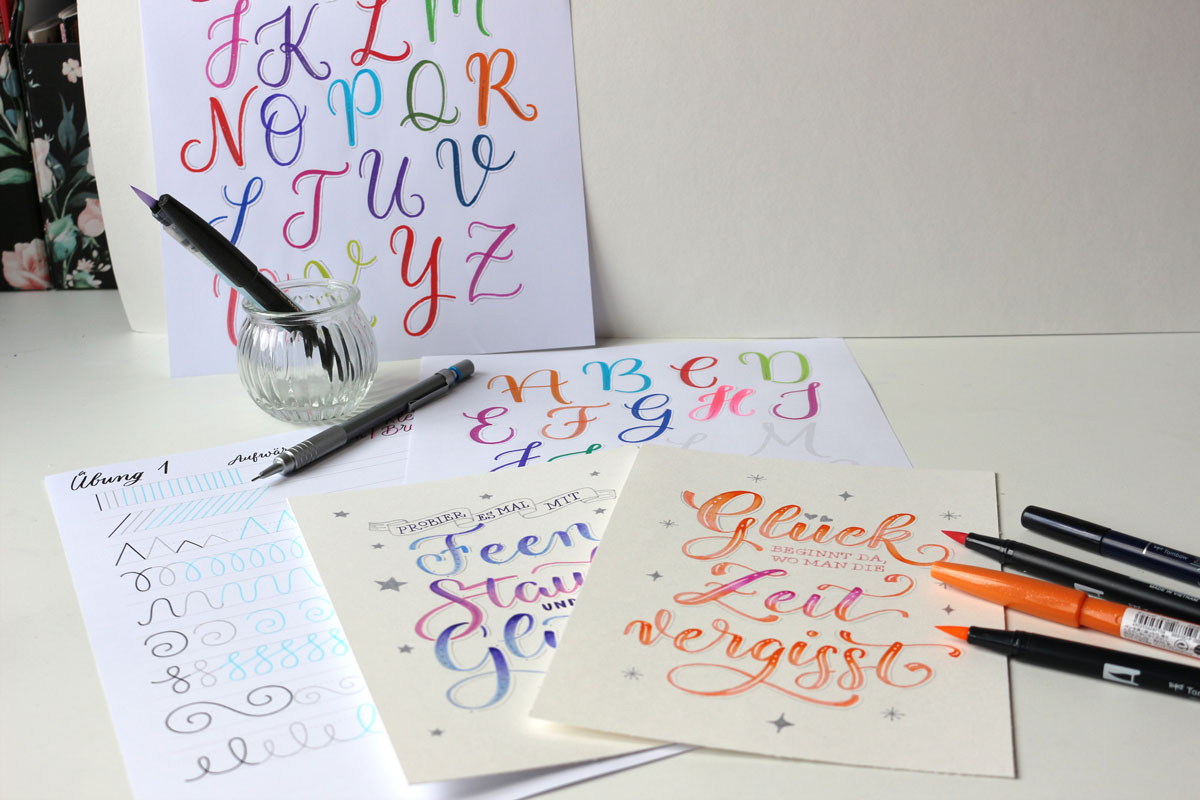 J K L M
N O P Q R
S T U V
Y Z
A B C D
E F G H I
M
Übung 1
Aufwär
PROBIER ES MAL MIT
Feen
Stau
UND
Gli
Glück
BEGINNT DA,
WO MAN DIE
Zeit
vergisst
Tombow